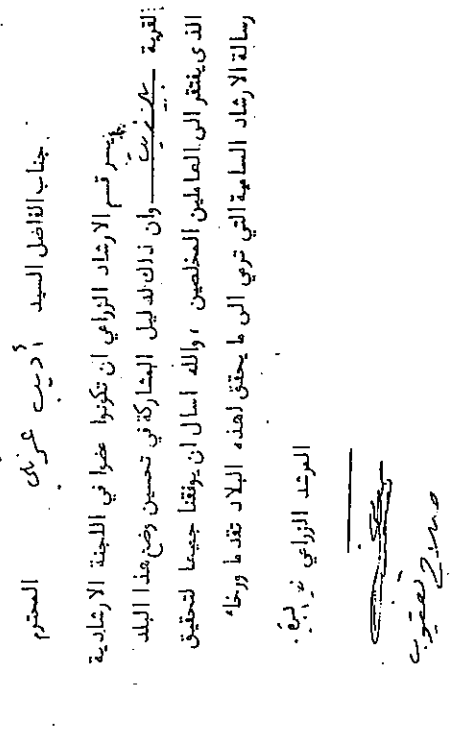 جناب الفاضل السيد أديب عزني المحترم
يسر قسم الارشاد الزراعي ان تكونوا عضوا في اللجنة الارشادية
لقرية وان ذلك لدليل المشاركة في تحسين وضع هذا البلد
الذى يفتقر الى العاملين المخلصين ، والله اسال ان يوفقنا جميعا لتحقيق
رسالة الارشاد السامية التي ترمي الى ما يحقق لهذه البلاد تقدما ورخاء
المرشد الزراعي
صالح يعقوب